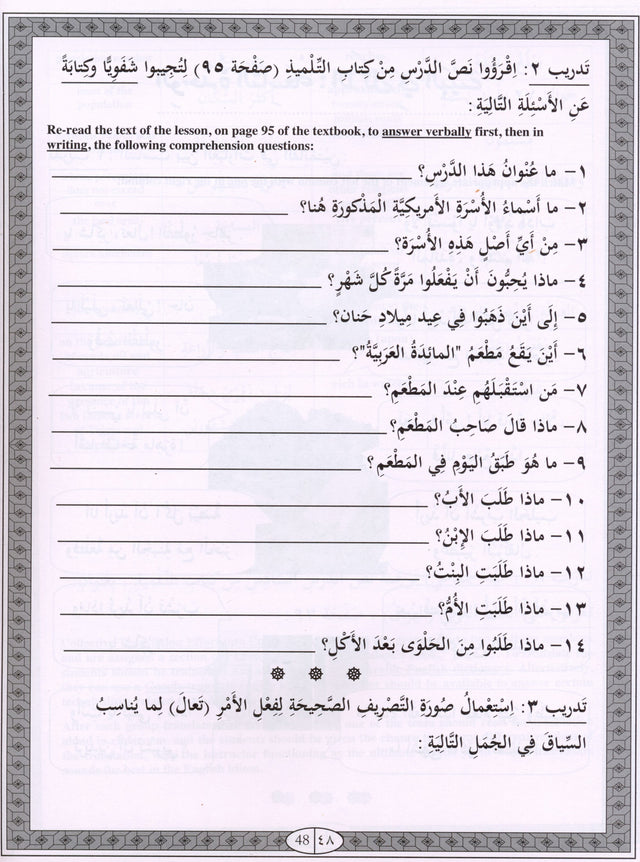 تدريب ٢: اِقْرَؤُوا نَصَّ الدَّرْسِ مِنْ كِتابِ التِّلْميذِ (صَفْحَة ٩٥) لِتُجيبوا شَفَوِيًّا وكِتابَةً
عَنِ الأَسْئِلَةِ التَّالِيَةِ:
Re-read the text of the lesson, on page 95 of the textbook, to answer verbally first, then in
writing, the following comprehension questions:
١- ما عُنْوانُ هَذا الدَّرْسِ؟
٢- ما أَسْماءُ الأُسْرَةِ الأَمريكِيَّةِ المَذْكورَةِ هُنا؟
٣- مِنْ أَيِّ أَصْلٍ هَذِهِ الأُسْرَة؟
٤- ماذا يُحِبُّونَ أَنْ يَفْعَلُوا مَرَّةً كُلَّ شَهْرٍ؟
٥- إِلَى أَيْنَ ذَهَبُوا فِي عِيد مِيلادِ حَنان؟
٦- أَيْنَ يَقَعُ مَطْعَمُ "المائِدَةُ العَرَبِيَّةُ"؟
٧- مَن اسْتَقْبَلَهُم عِنْدَ المَطْعَمِ؟
٨- ماذا قالَ صَاحِبُ المَطْعَمِ؟
٩- ما هُوَ طَبَقُ اليَوْمِ فِي المَطْعَمِ؟
١٠- ماذا طَلَبَ الأَبُ؟
١١- ماذا طَلَبَ الإِبْنُ؟
١٢- ماذا طَلَبَتِ البِنْتُ؟
١٣- ماذا طَلَبَتِ الأُمُّ؟
١٤- ماذا طَلَبُوا مِنَ الحَلْوَى بَعْدَ الأَكْلِ؟
تَدريب ٣: اِسْتِعْمالُ صُورَةِ التَّصْريفِ الصَّحيحَةِ لِفِعْلِ الأَمْرِ (تَعالَ) لِما يُناسِبُ
السِّياقَ فِي الجُمَلِ التَّالِيَةِ:
48 ٤٨